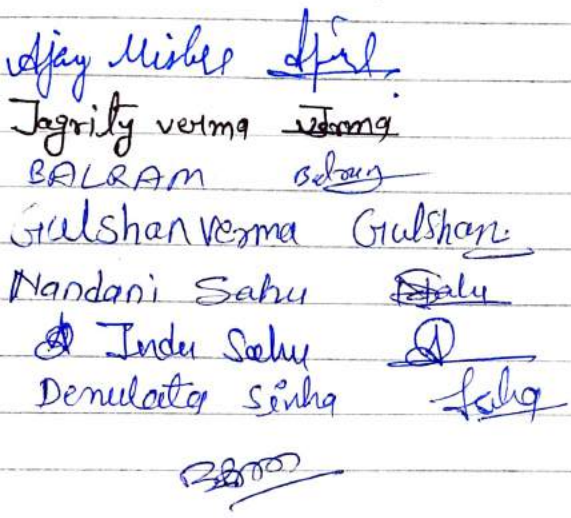 Ajay Mishra
Jagrity verma verma
BALRAM Balram
Gulshan verma Gulshan
Nandani Sahu Sahu
Indu Sahu
Denulata Sinha